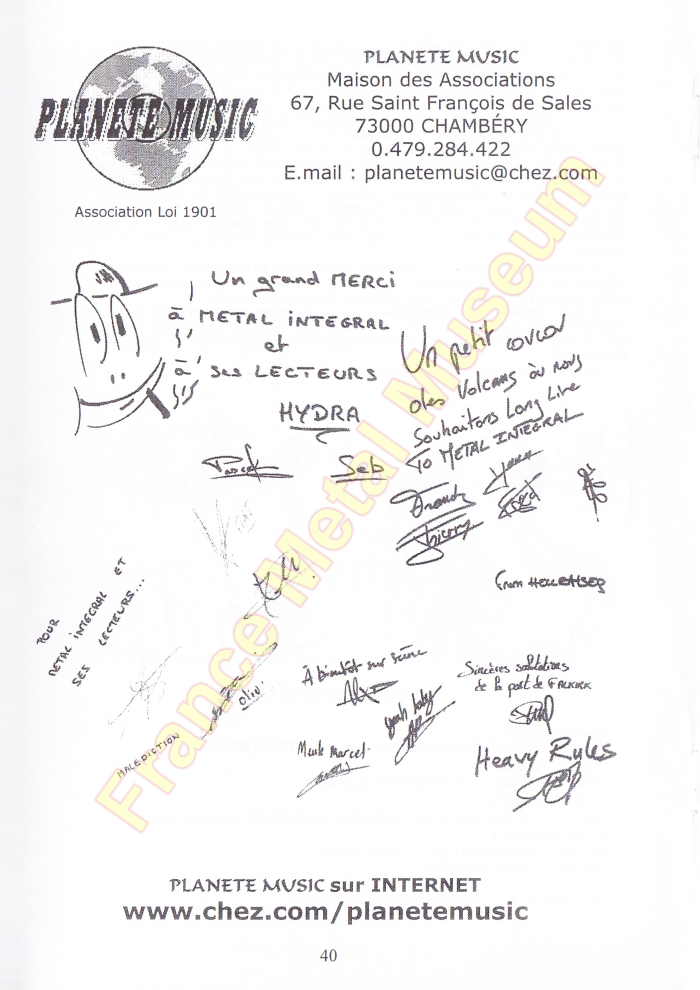 PLANETE MUSIC
Association Loi 1901
PLANETE MUSIC
Maison des Associations
67, Rue Saint François de Sales
73000 CHAMBÉRY
0.479.284.422
E.mail : planetemusic@chez.com
Un grand MERCI
à METAL INTEGRAL
et
à ses LECTEURS
HYDRA
Pascal
Seb
Un petit coucou
des Volcans où nous
Souhaitons Long Live
To METAL INTEGRAL
Franck
Thierry
From
POUR
METAL INTEGRAL ET
SES LECTEURS...
MALEDICTION
Oliv'
À bientôt sur scène
Alex
yeah baby
Meule Marcel
Sincères salutations
de la part de FALKIRK
Heavy Rules
France Metal Museum
PLANETE MUSIC sur INTERNET
www.chez.com/planetemusic
40